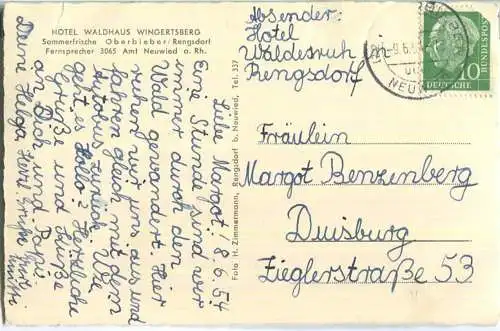 HOTEL WALDHAUS WINGERTSBERG
Sommerfrische Oberbieber/Rengsdorf
Fernsprecher 3065 Amt Neuwied a. Rh.
Liebe Margot! 8.6.54
Eine Stunde sind wir
immer durch den
Wald gewandert. Hier
ruhen wir uns aus und
fahren gleich mit dem
Autobus zurück. Wie
geht es Hollo? Herzliche
Grüße und Küsse
an Dich und Pappi
Deine Helga Herzl. Grüße
Foto H. Zimmermann, Rengsdorf b. Neuwied, Tel. 357
Absender:
Hotel
Waldesruh
Rengsdorf
-9.6.
NEUW
10
DEUTSCHE
BUNDESPOST
Fräulein
Margot Benzenberg
Duisburg
Zieglerstraße 53